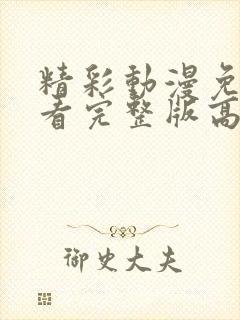 精彩動漫免
看完整版高
御史大夫